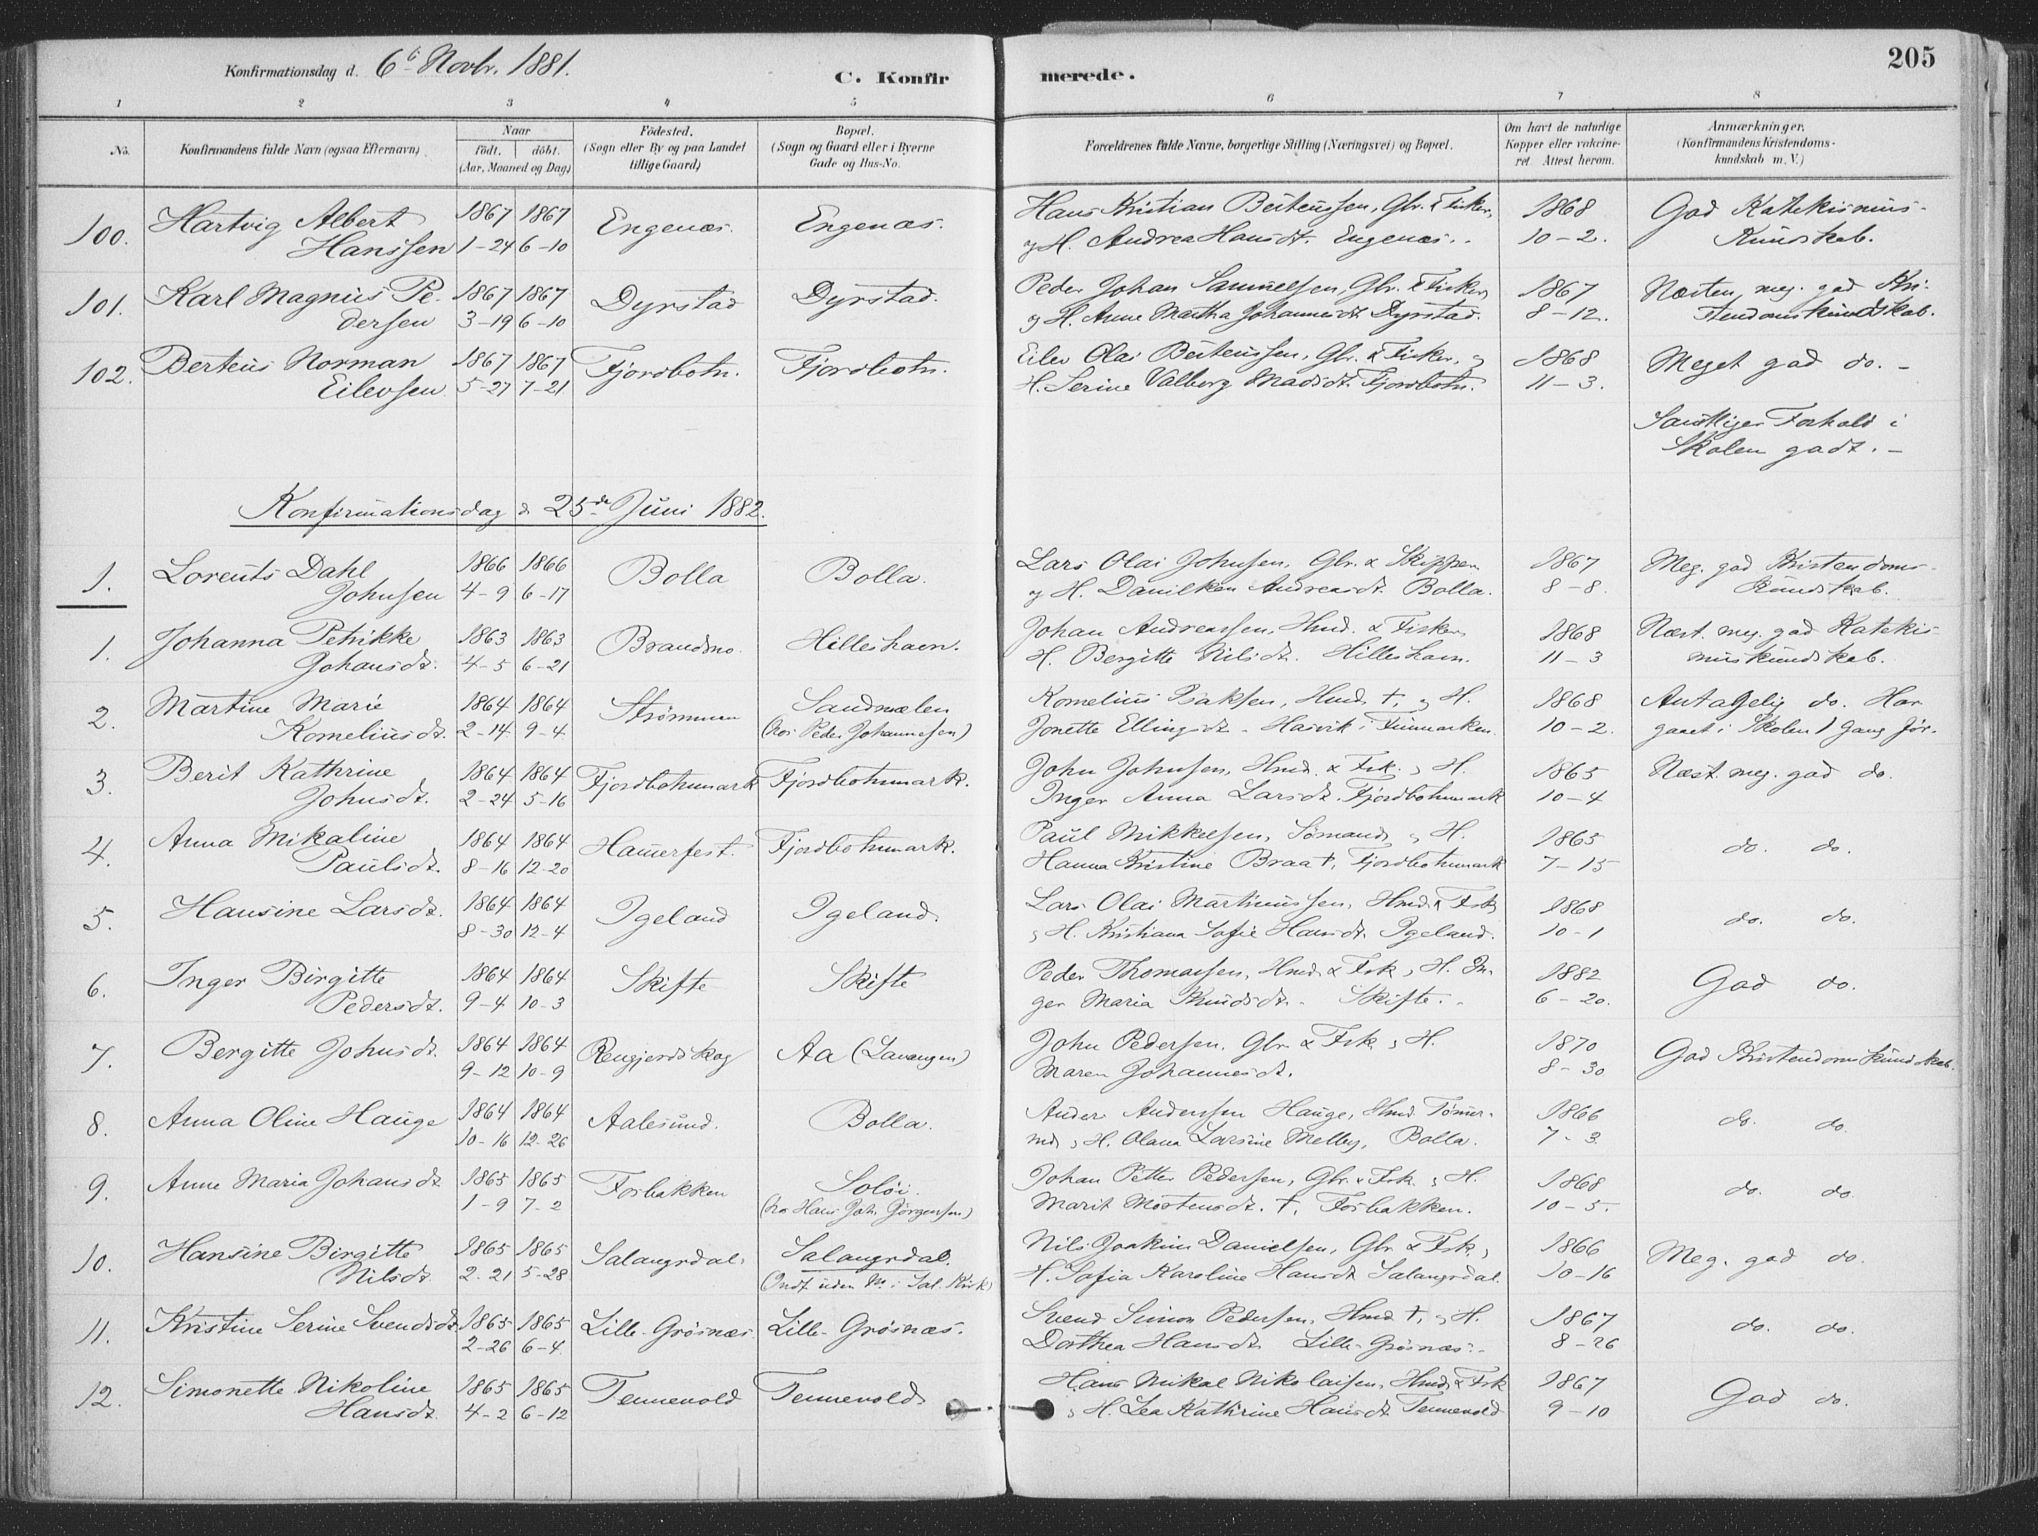 Konfirmationsdag d. 6t Novbr. 1881.
C. Konfirmerede.
205
1 2 3 4 5 6 7 8
No.
Konfirmandens fulde Navn (ogsaa Efternavn)
Naar
födt. döbt.
(Aar, Maaned og Dag)
Födested.
(Sogn eller By og paa Landet
tillige Gaard)
Bopæl.
(Sogn og Gaard eller i Byerne
Gade og Hus-No.
Forældrenes fulde Navne, borgerlige Stilling (Næringsvei) og Bopæl.
Om havt de naturlige
Kopper eller vakcineret. Attest herom.
Anmærkninger.
(Konfirmandens Kristendomskundskab m. V.)
100. Hartvig Albert 1867 1867 Engenæs. Engenæs. Hans Kristian Berteussen, Gbr. & Fisker, 1868 God Katekismus-
Hanssen 1-24 6-10 og H. Andrea Hansdt. Engenæs. 10-2. Kundskab.
101. Karl Magnus Pe- 1867 1867 Dyrstad Dyrstad. Peder Johan Samuelsen, Gbr. & Fisker, 1867 Næsten meg. god Kri-
dersen 3-19 6-10 og H. Anne Martha Johannesdt Dyrstad. 8-12. stendomskundskab.
102. Berteus Norman 1867 1867 Fjordbotn. Fjordbotn. Eilev Olai Berteussen, Gbr. & Fisker, og 1868 Meget god do. -
Eilevsen 5-27 7-21 H. Serine Valborg Madsdt. Fjordbotn. 11-3.
Samtliges Forhold i
Skolen godt. -
Konfirmationsdag d 25de Juni 1882.
1. Lorents Dahl 1866 1866 Bolla Bolla. Lars Olai Johnsen, Gbr. & Skipper 1867 Meg. god Kristendoms-
Johnsen 4-9 6-17 og H. Danilken Andreasdt. Bolla. 8-8. kundskab.
1. Johanna Petrikke 1863 1863 Brandmo. Hilleshavn. Johan Andreassen, Hmd. & Fisker, 1868 Næst. meg. god Katekis-
Johansdt. 4-5 6-21 H. Bergitte Nilsdt. Hilleshavn. 11-3 muskundskab.
2. Martine Marie 1864 1864 Strømmen Sandmælen Kornelius Isaksen, Hmd. †, og H. 1868 Antagelig do. Har
Korneliusdt. 2-14 9-4 (hos Peder Johannesen) Jonette Ellingsdt - Hasvik i Finmarken. 10-2. gaaet i Skolen 1 Gang før.
3. Berit Kathrine 1864 1864 Fjordbotnmark Fjordbotnmark. John Johnsen, Hmd. & Fsk. og H. 1865 Næst. meg. god do.
Johnsdt. 2-24 5-16 Inger Anna Larsdt. Fjordbotnmark 10-4
4. Anna Mikaline 1864 1864 Hamerfest. Fjordbotnmark. Paul Mikkelsen, Sømand, og H. 1865 do. do.
Paulsdt. 8-16 12-20 Hanna Kristine Braa †, Fjordbotnmark 7-15
5. Hansine Larsdt. 1864 1864 Igeland Igeland. Lars Olai Martinussen, Hmd. & Fsk 1868 do. do.
8-30 12-4 og H. Kristiana Sofie Hansdt. Igeland. 10-1
6. Inger Birgitte 1864 1864 Skifte Skifte Peder Thomassen, Hmd. & Fsk, og H. In- 1882 God do.
Pedersdt. 9-4 10-3 ger Maria Knudsdt. - Skifte. - 6-20.
7. Bergitte Johnsdt. 1864 1864 Rengjerdskog Aa (Lavangen) John Pedersen, Gbr. & Fsk. og H. 1870 God Kristendomskundskab.
9-12 10-9 Maren Johannesdt. 8-30
8. Anna Oline Hauge 1864 1864 Aalesund. Bolla. Anders Anderssen Hauge, Hmd. Tømer- 1866 do. do.
10-16 12-26 md og H. Olana Larsine Melby, Bolla. 7-3
9. Anne Maria Johansdt 1865 1865 Forbakken Soløi. Johan Petter Pedersen, Gbr. & Fsk. og H. 1868 do. do.
1-9 7-2 (hos Hans Joh. Jørgensen) Marit Mortensdt. †. Forbakken. 10-5.
10. Hansine Birgitte 1865 1865 Salangsdal. Salangsdal. Nils Joakim Danielsen, Gbr. & Fsk. og 1866 Meg. god do.
Nilsdt. 2-21 5-28 H. Sofia Karoline Hansdt Salangsdal. 10-16
11. Kristine Serine Svendsdt 1865 1865 Lille-Grøsnæs. Lille-Grøsnæs. Svend Simon Pedersen, Hmd †, og H. 1867 do. do.
2-26 6-4. Dorthea Hansdt Lille-Grøsnæs. - 8-26
12. Simonette Nikoline 1865 1865 Tennevold Tennevold. Hans Mikal Nikolaisen, Hmd. & Fsk 1867 God do.
Hansdt. 4-2 6-12 og H. Lea Kathrine Hansdt Tennevold 9-10